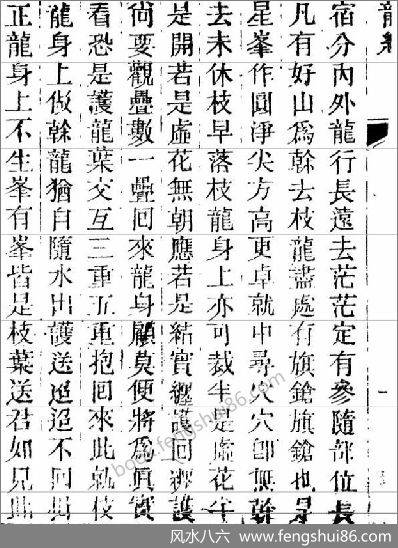 龍
一
宿分內外龍行長遠去茫茫定有參隨部位長
凡有好山為幹去枝龍盡處有旗鎗旗鎗也是
星峯作圓淨尖方高更卓就中尋穴穴卽無幹
去未休枝早落枝龍身上亦可裁半是虛花半
是開若是虛花無朝應若是結實纏護回纏護
尚要觀疊數一疊回來龍身顧莫便將為真實
看恐是護龍葉交互三重五重抱回來此就枝
龍身上做幹龍猶自隨水出護送迢迢不回
正龍身上不生峯有峯皆是枝葉送君如見此
bbs.fengshui86.com
风水八六 www.fengshui86.com